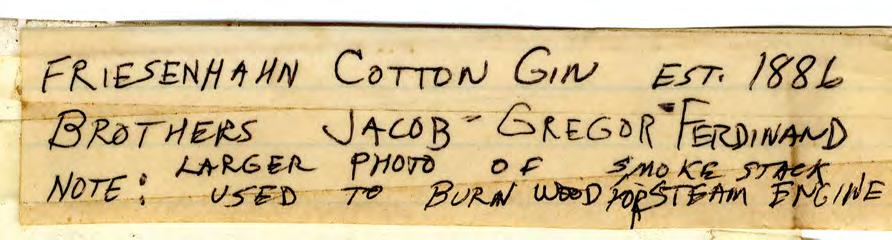 FRIESENHAHN COTTON GIN EST. 1886
BROTHERS JACOB - GREGOR - FERDINAND
NOTE: LARGER PHOTO OF SMOKE STACK
USED TO BURN WOOD FOR STEAM ENGINE